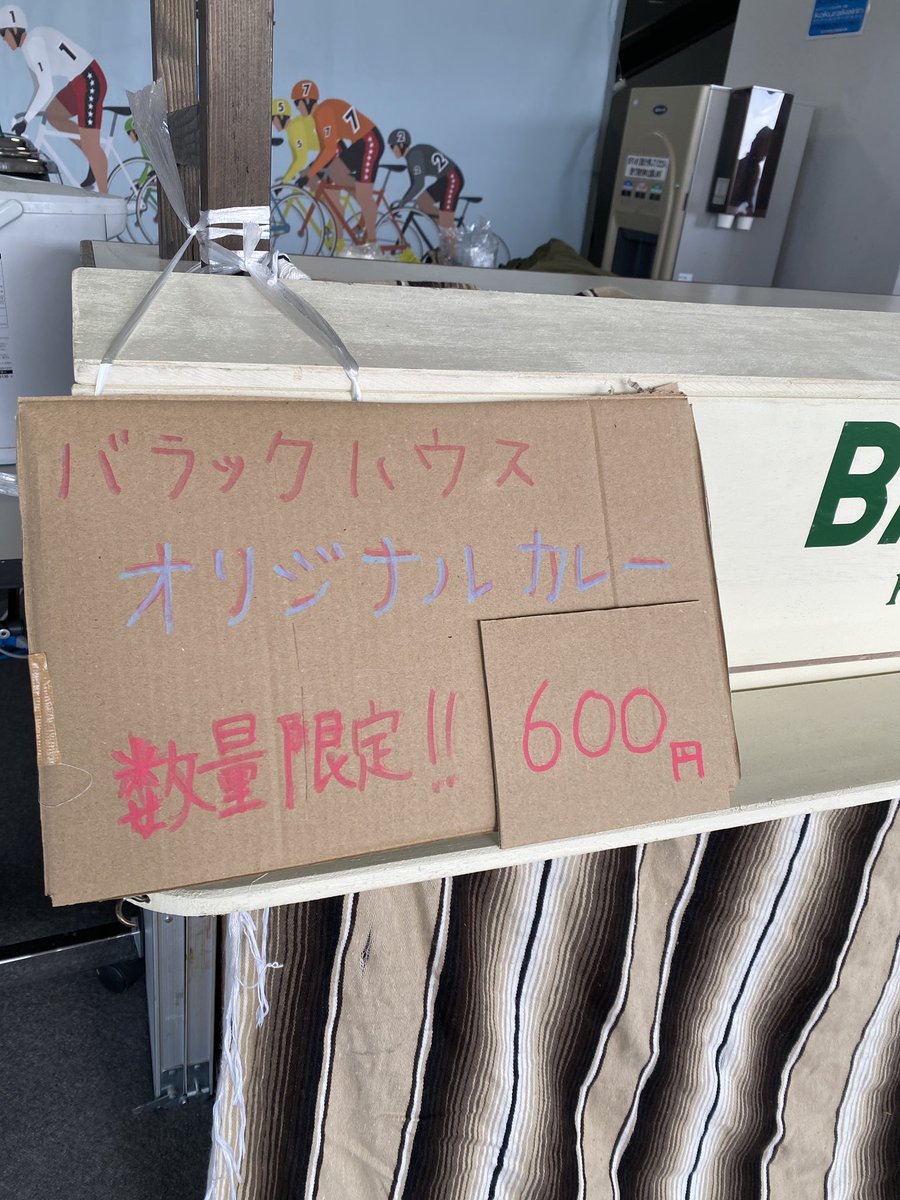 バラックハウス
オリジナルカレー
数量限定!!
600円
1
1
5
7
7
2
2
kokurakeirin